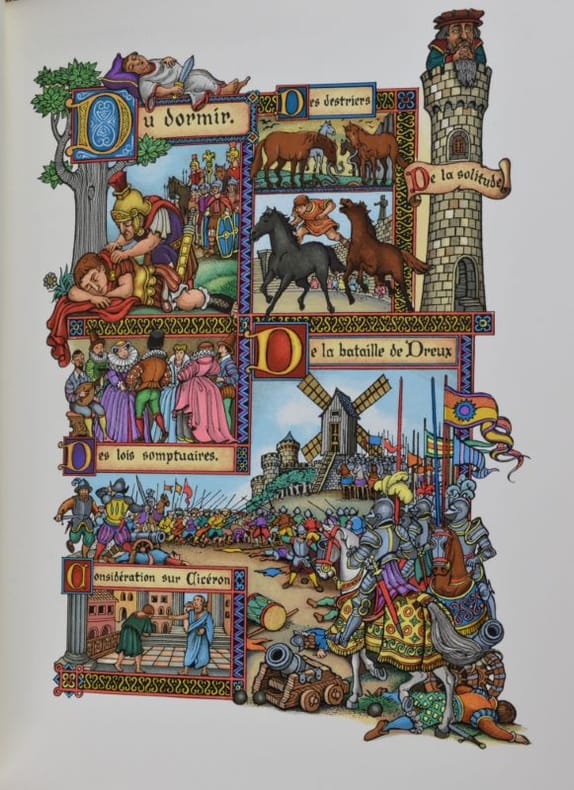 Du dormir.
Des destriers
De la solitude
De la bataille de Dreux
Des lois somptuaires.
Considération sur Cicéron